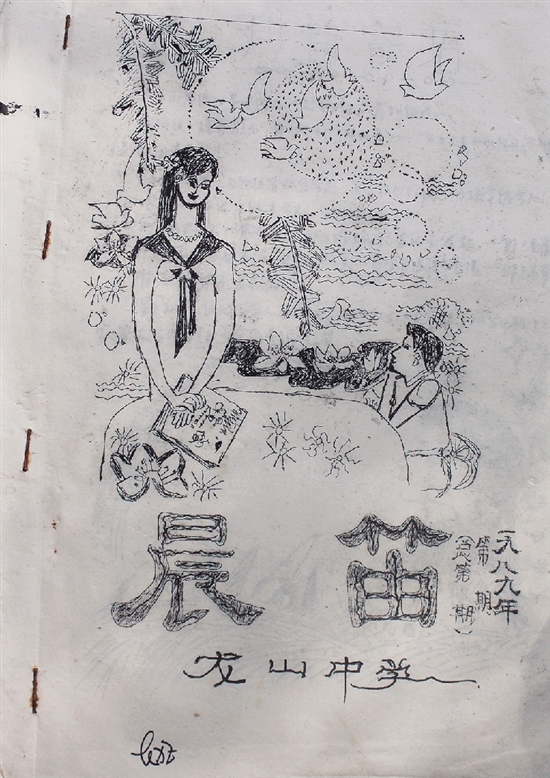 晨笛
一九八九年
第 期
(总第 期)
龙山中学